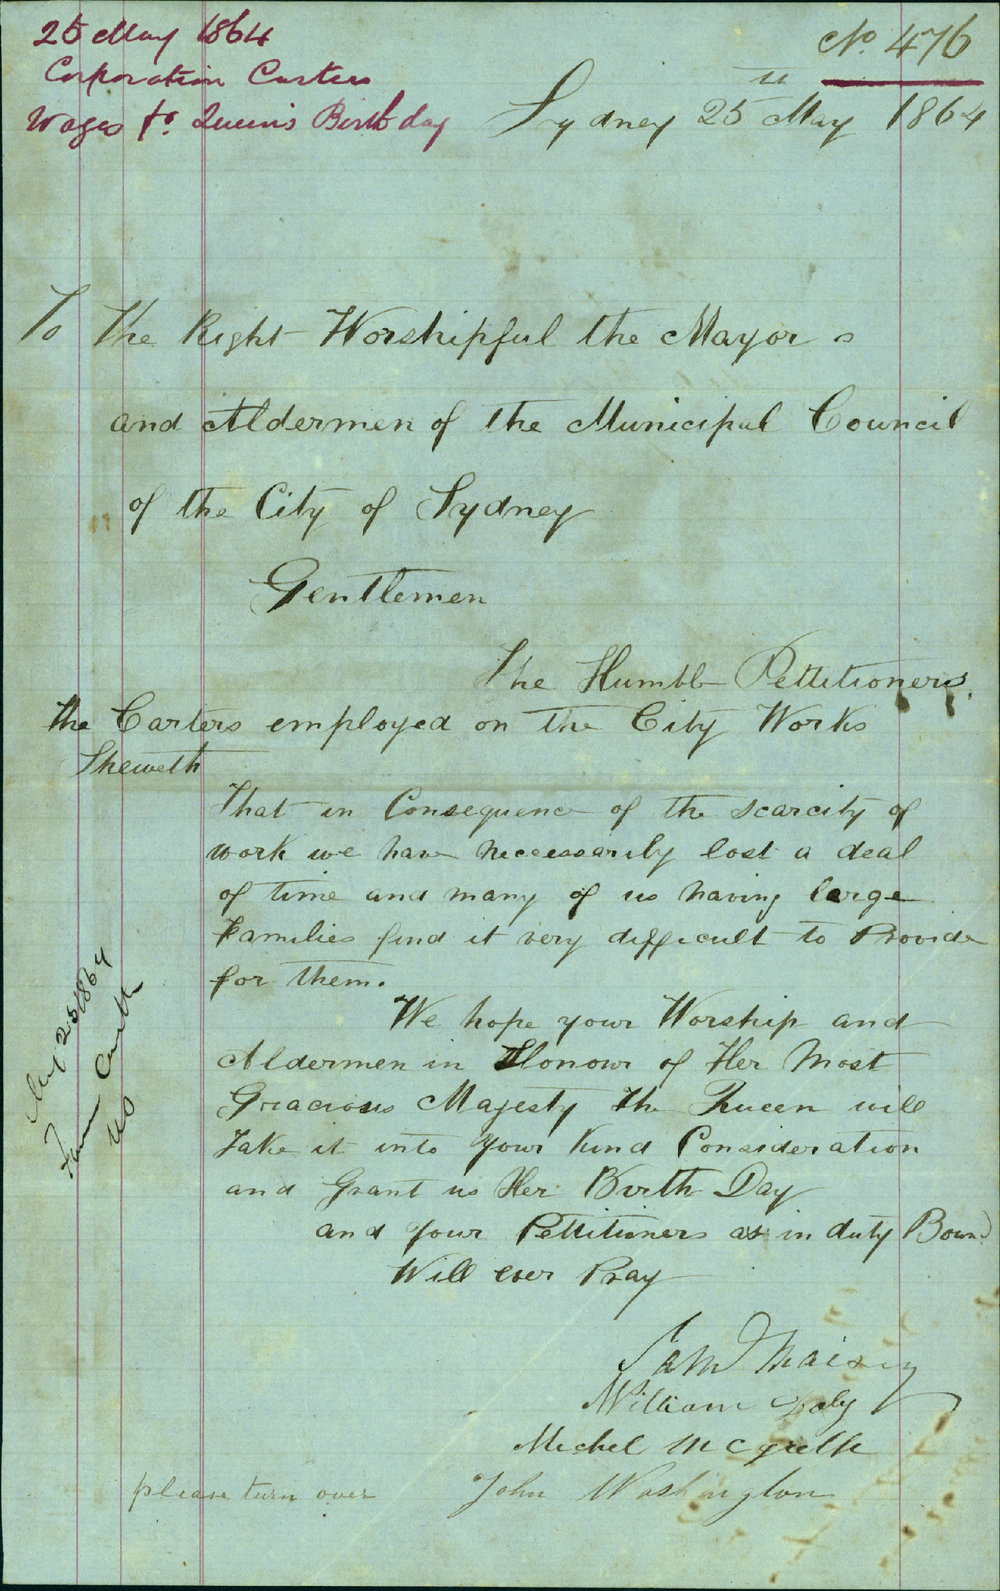 25 May 1864
Corporation Carters
Wages for Queen's Birthday
No. 476
Sydney 25th May 1864
To The Right Worshipful the Mayor
and Aldermen of the Municipal Council
of the City of Sydney
Gentlemen
The Humble Pettitioners
the Carters employed on the City Works
Sheweth
That in Consequence of the scarcity of
work we have neccessarily lost a deal
of time and many of us having large
Families find it very difficult to Provide
for them.
We hope your Worship and
Aldermen in Honour of Her Most
Gracious Majesty the Queen will
Take it into your Kind Consideration
and Grant us Her Birth Day
and your Pettitioners as in duty Bound
Will ever Pray
Sam
William Daly
Michel
John Washington
please turn over
May 25 1864